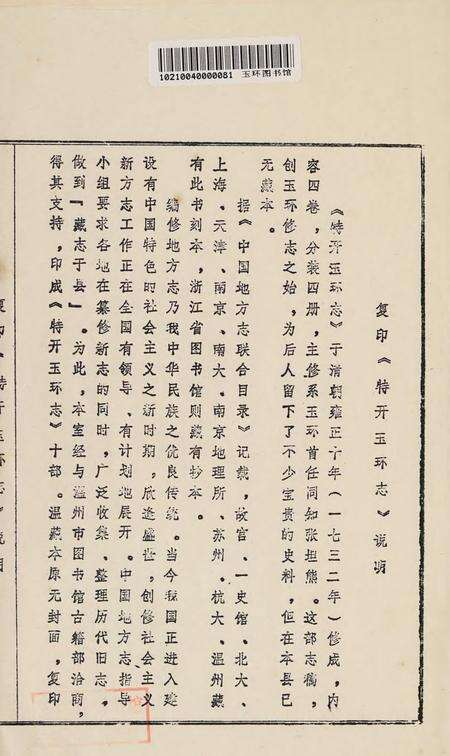 10210040000081 玉环图书馆
复印《特开玉环志》说明
《特开玉环志》于清朝雍正十年（一七三二年）修成，内
容四卷，分装四册，主修系玉环首任同知张坦熊。这部志稿，
创玉环修志之始，为后人留下了不少宝贵的史料，但在本县已
无藏本。
据《中国地方志联合目录》记载，故宫、一史馆、北大、
上海、天津、南京、南大、南京地理所、苏州、杭大、温州藏
有此书刻本，浙江省图书馆则藏有抄本。
编修地方志乃我中华民族之优良传统。当今我国正进入建
设有中国特色的社会主义之新时期，欣逢盛世，创修社会主义
新方志工作正在全国有领导、有计划地展开。中国地方志指导
小组要求各地在纂修新志的同时，广泛收集、整理历代旧志。
做到『藏志于县』。为此，本室经与温州市图书馆古籍部洽商，
得其支持，印成《特开玉环志》十部。温藏本原无封面，复印
复印《特开玉环志》说明